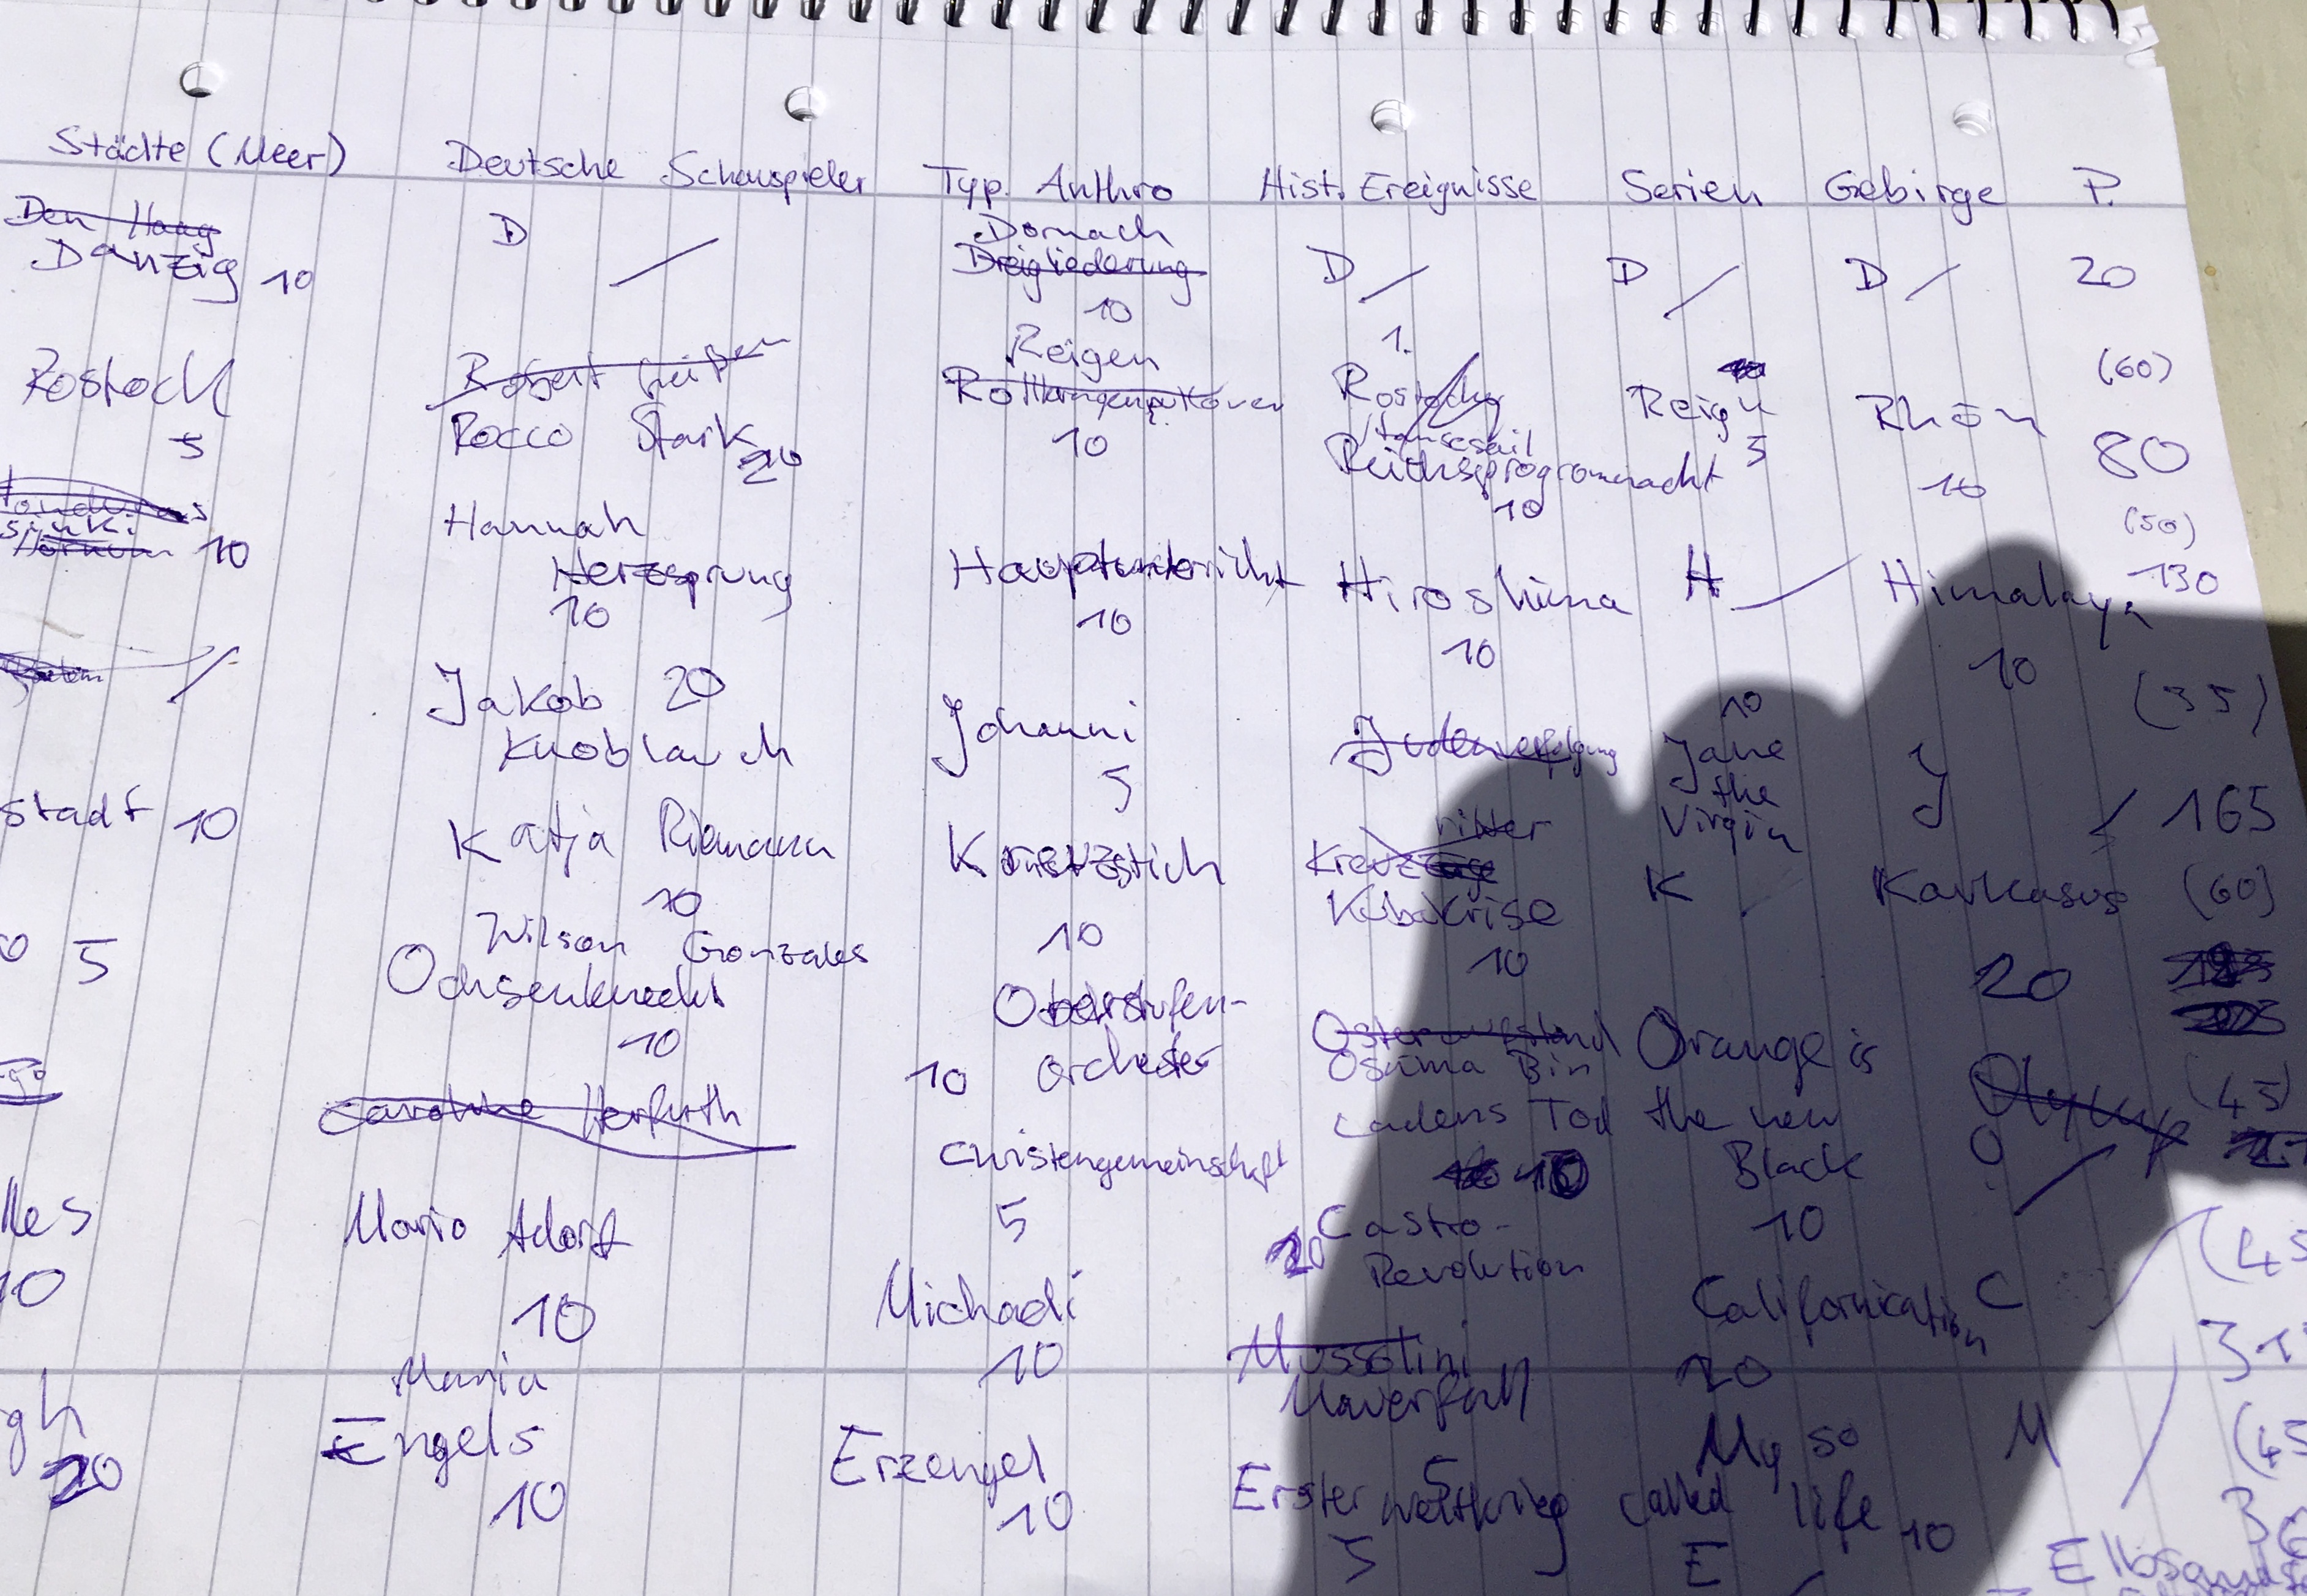 Städte (Meer) Deutsche Schauspieler Typ. Anthro Hist. Ereignisse Serien Gebirge P.
Den Haag Dornach
Danzig 10 D Dreigliederung D D D 20
10
Reigen 1. (60)
Rostock Robert Rostocker Reign Rhön
5 Rocco Stark 20 10 Hansesail 5 80
Reichsprogromnacht 10
10
Hannah (50)
10 Herzsprung Hauptunterricht Hiroshima H Himalaya 130
10 10 10 10
Jakob 20 Johanni Judenverfolgung 10 J (35)
Knoblauch 5 Jane
the
Virgin 165
stadt 10 Katja Riemann Kreuzstich ritter
Kreuzzüge K Kaukasus (60)
10 10 Kubakrise 20
10
5 Wilson Gonzales Oberstufen- Osteraufstand Orange is
Ochsenknecht orchester Osama Bin the new Olymp (45)
10 10 Ladens Tod Black O
10
Caroline Herfurth Christengemeinschaft Castro-
5 20 Revolution Californication C (45
lles Mario Adorf 20
10 10 Michaeli Mussolini
10 Mauerfall My so M (45
5 called life 10
gh Maria
20 Engels Erzengel Erster Weltkrieg E
10 10 5